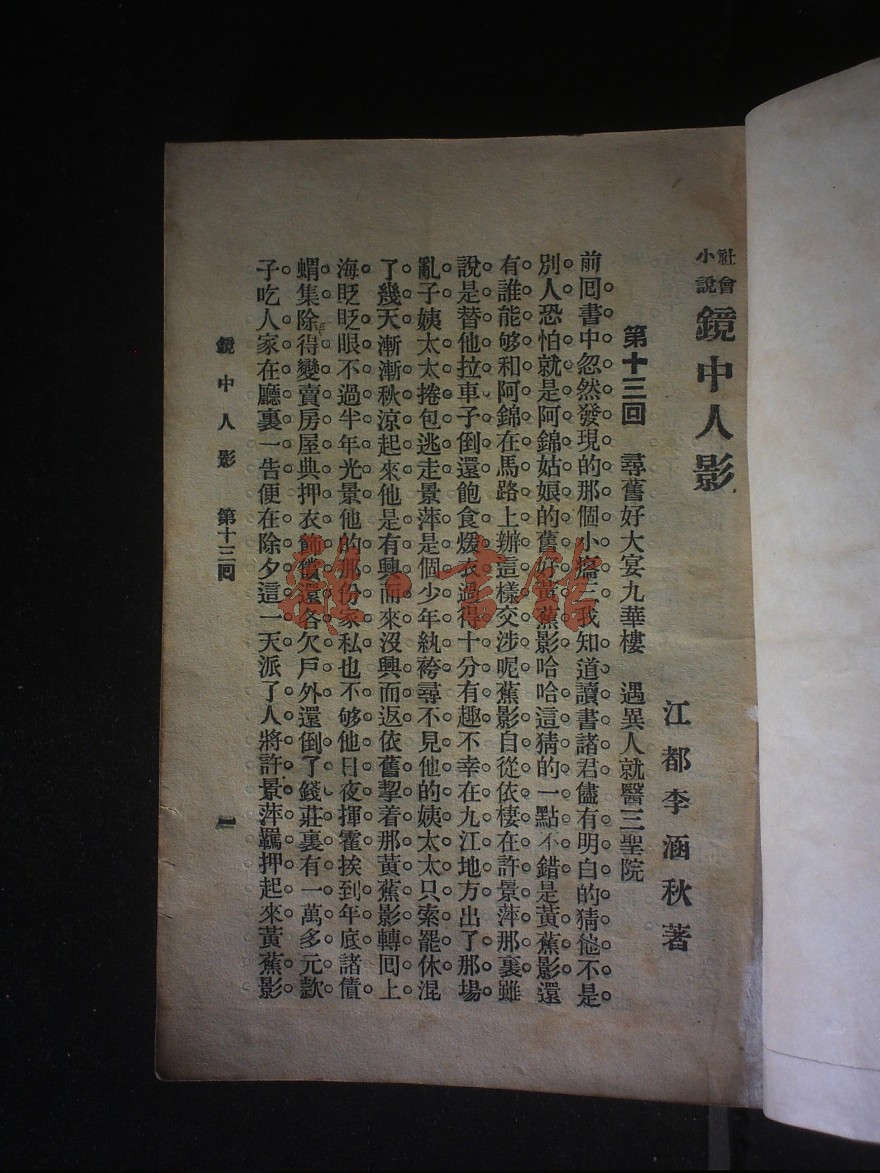 社會小說 鏡中人影
江都李涵秋著
第十三回 尋舊好大宴九華樓 遇異人就醫三聖院
前回書中忽然發現的那個小癟三我知道讀書諸君儘有明白的猜他不是
別人恐怕就是阿錦姑娘的舊好黃蕉影哈哈這猜的一點不錯是黃蕉影還
有誰能够和阿錦在馬路上辦這樣交涉呢蕉影自從依棲在許景萍那裏雖
說是替他拉車子倒還飽食煖衣過得十分有趣不幸在九江地方出了那場
亂子姨太太捲包逃走景萍是個少年紈袴尋不見他的姨太太只索罷休混
了幾天漸漸秋涼起來他是有興而來沒興而返依舊挈着那黃蕉影轉回上
海眨眨眼不過半年光景他的那份家私也不够他日夜揮霍挨到年底諸債
蝟集除得變賣房屋典押衣飾償還各欠戶外還倒了錢莊裏有一萬多元款
子吃人家在廳裏一告便在除夕這一天派了人將許景萍羈押起來黃蕉影
鏡中人影 第十三回
雜·書館